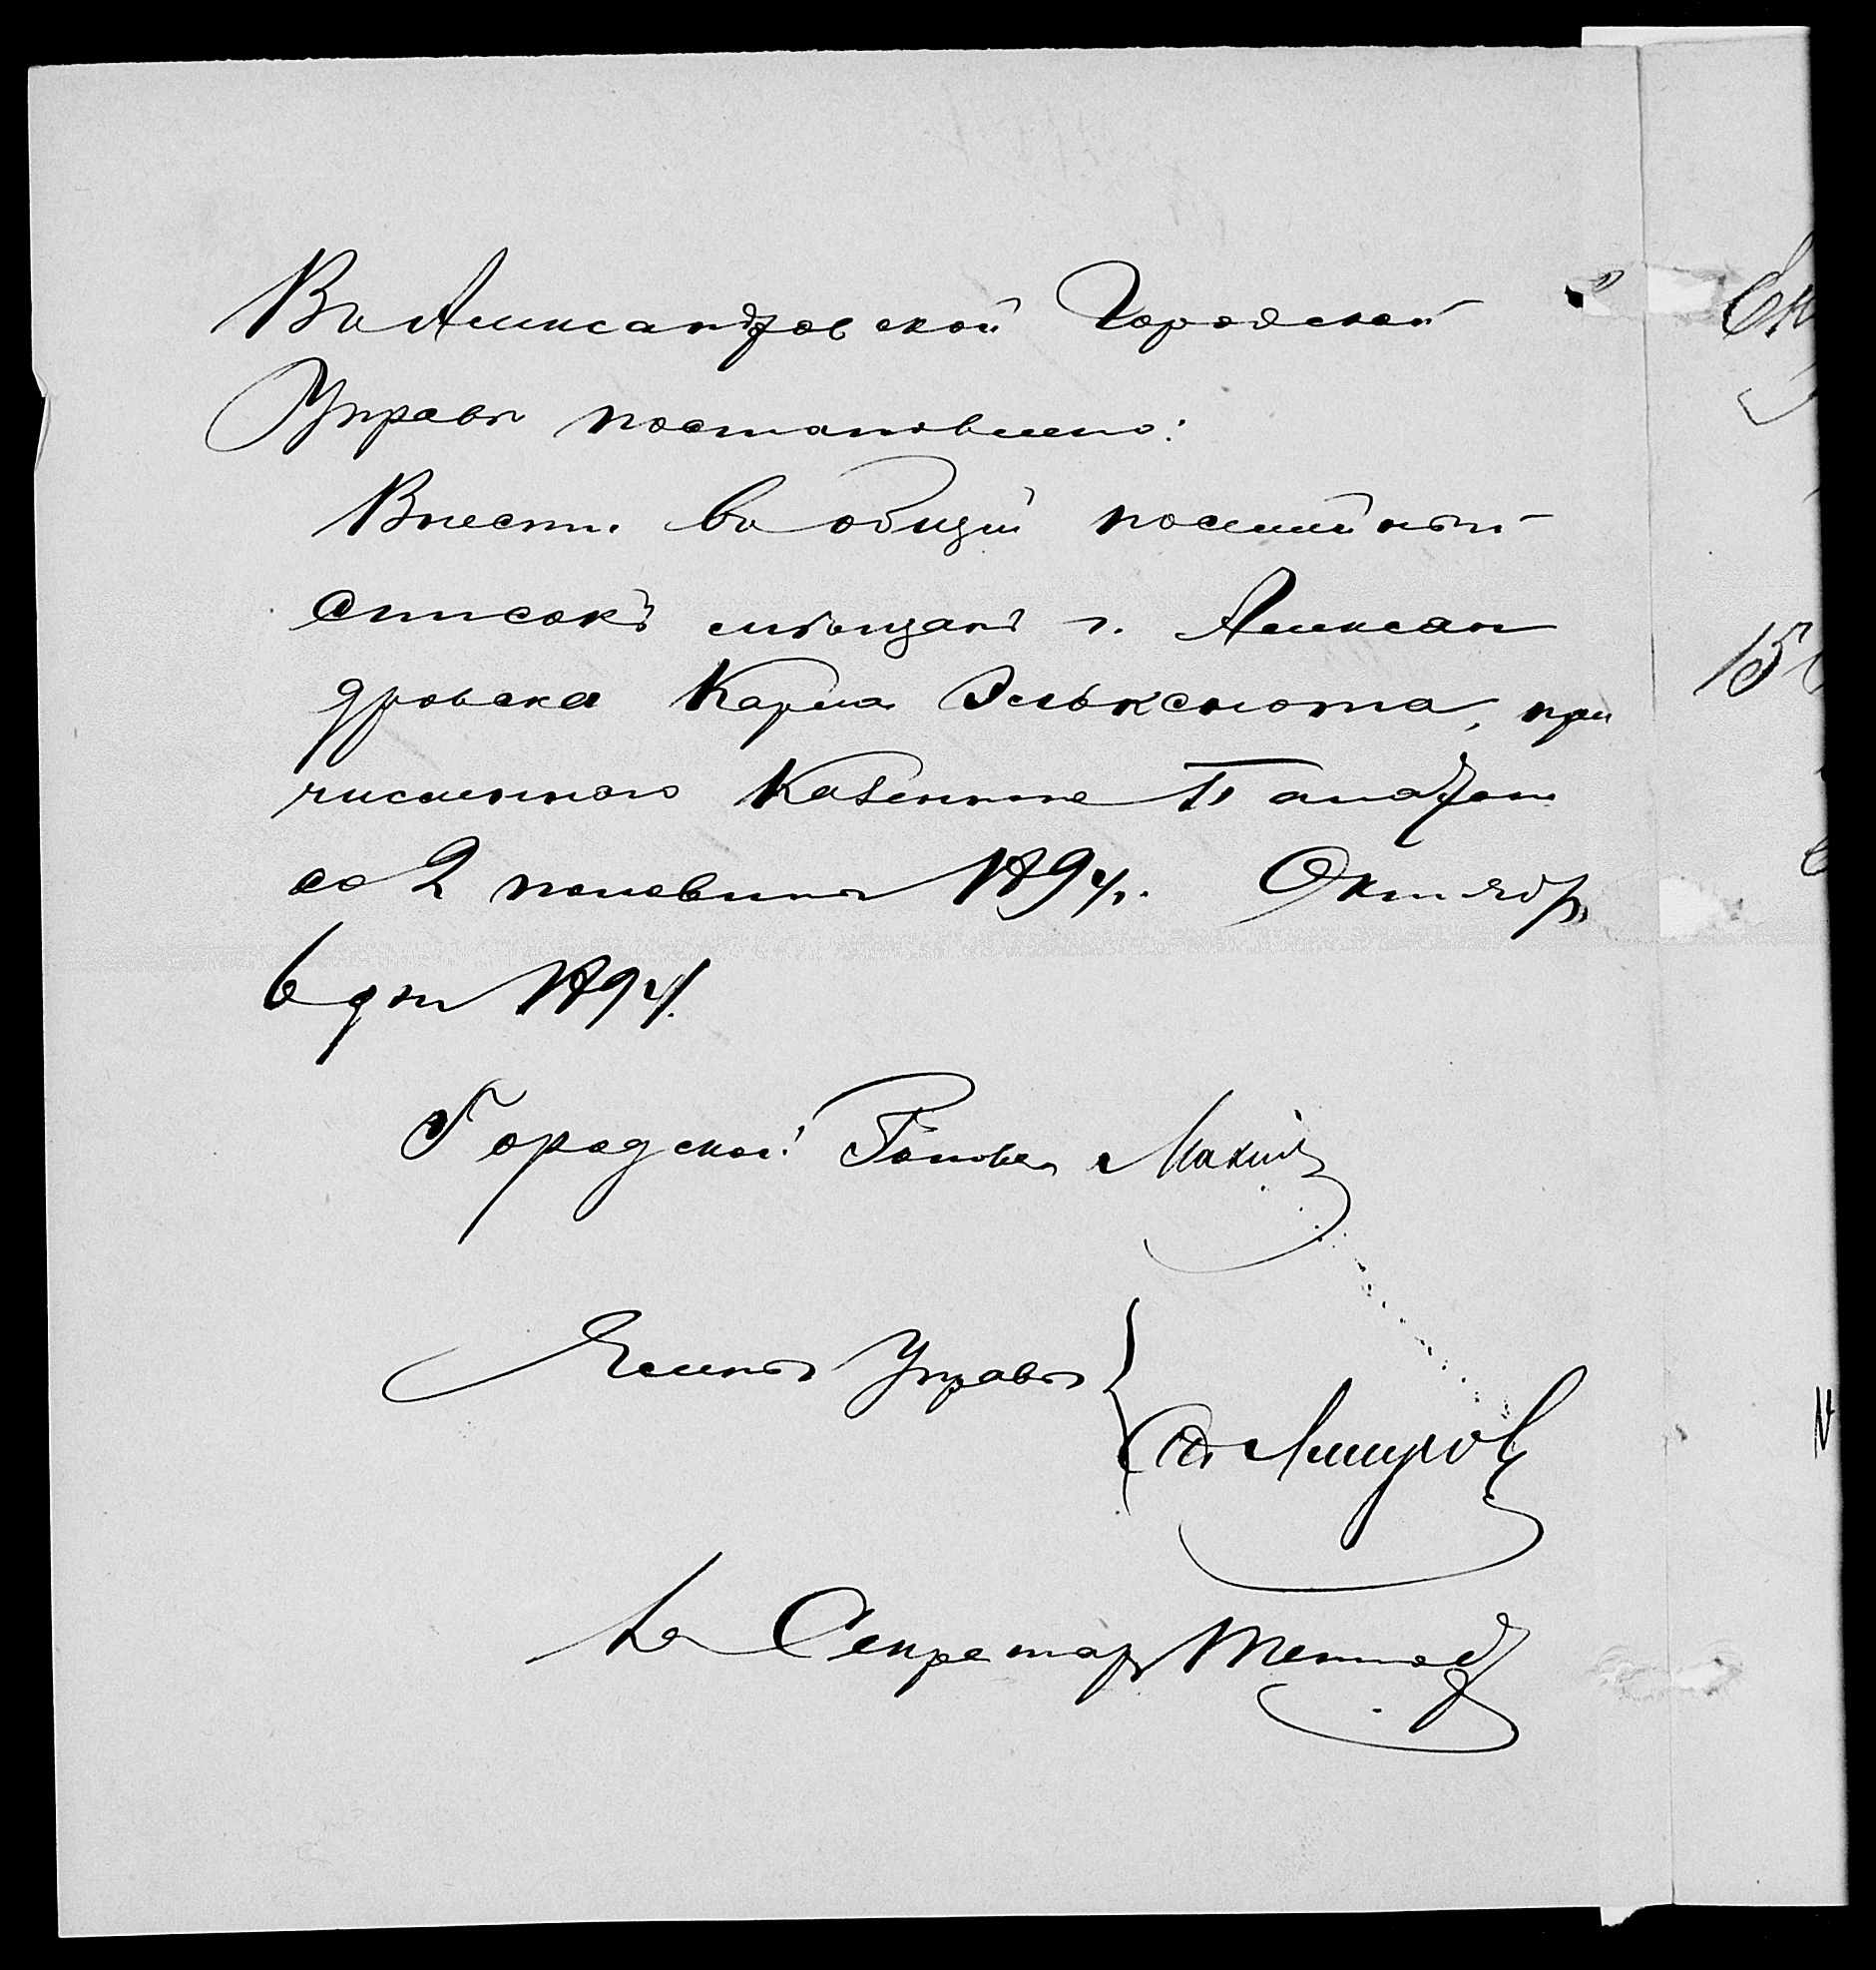 Въ Александровской Городской
Управѣ постановлено:
Внести въ общій посемейный
списокъ мѣщанъ г. Алексан
дровска Карла Эльксиота, при
численного Казенною Палатою
со 2 половины 1894 г. Октябр.
6 дня 1894
Городской Голова
Члены Управы
Секретарь
15